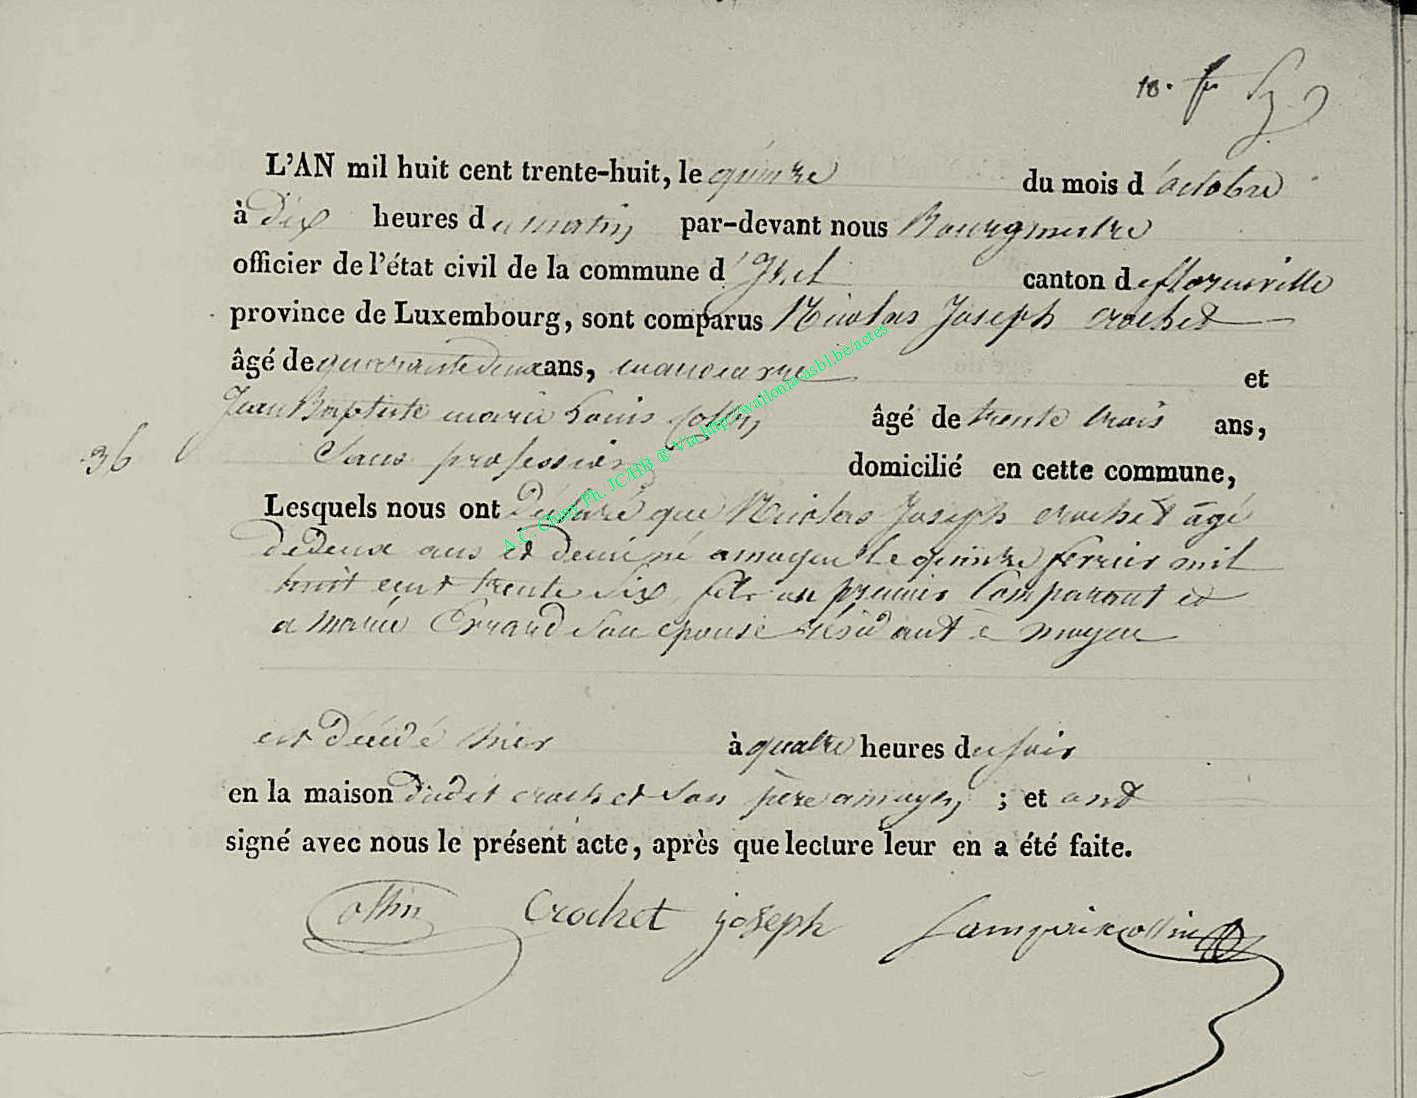 10. f
L'AN mil huit cent trente-huit, le quinze du mois d'octobre
à Dix heures du matin par-devant nous Bourgmestre
officier de l'état civil de la commune d'Izel canton de florenville
province de Luxembourg, sont comparus Nicolas Joseph crochet
âgé de quarante deux ans, manoeuvre et
Jean Baptiste marie Louis Collin âgé de trente trois ans,
36 Sans profession domicilié en cette commune,
Lesquels nous ont Déclaré que Nicolas Joseph crochet âgé
de Deux ans et Demi né a moyen le quinze fevrier mil
huit cent trente Six, fils au premier Comparant et
a marie Errard Son epouse résidant à moyen
est Décédé hier à quatre heures du soir
en la maison dudit crochet Son père a moyen ; et ont
signé avec nous le présent acte, après que lecture leur en a été faite.
Collin Crochet joseph
A.C. Chiny Ph. JCHB ® Via http://wallonia-asbl.be/actes